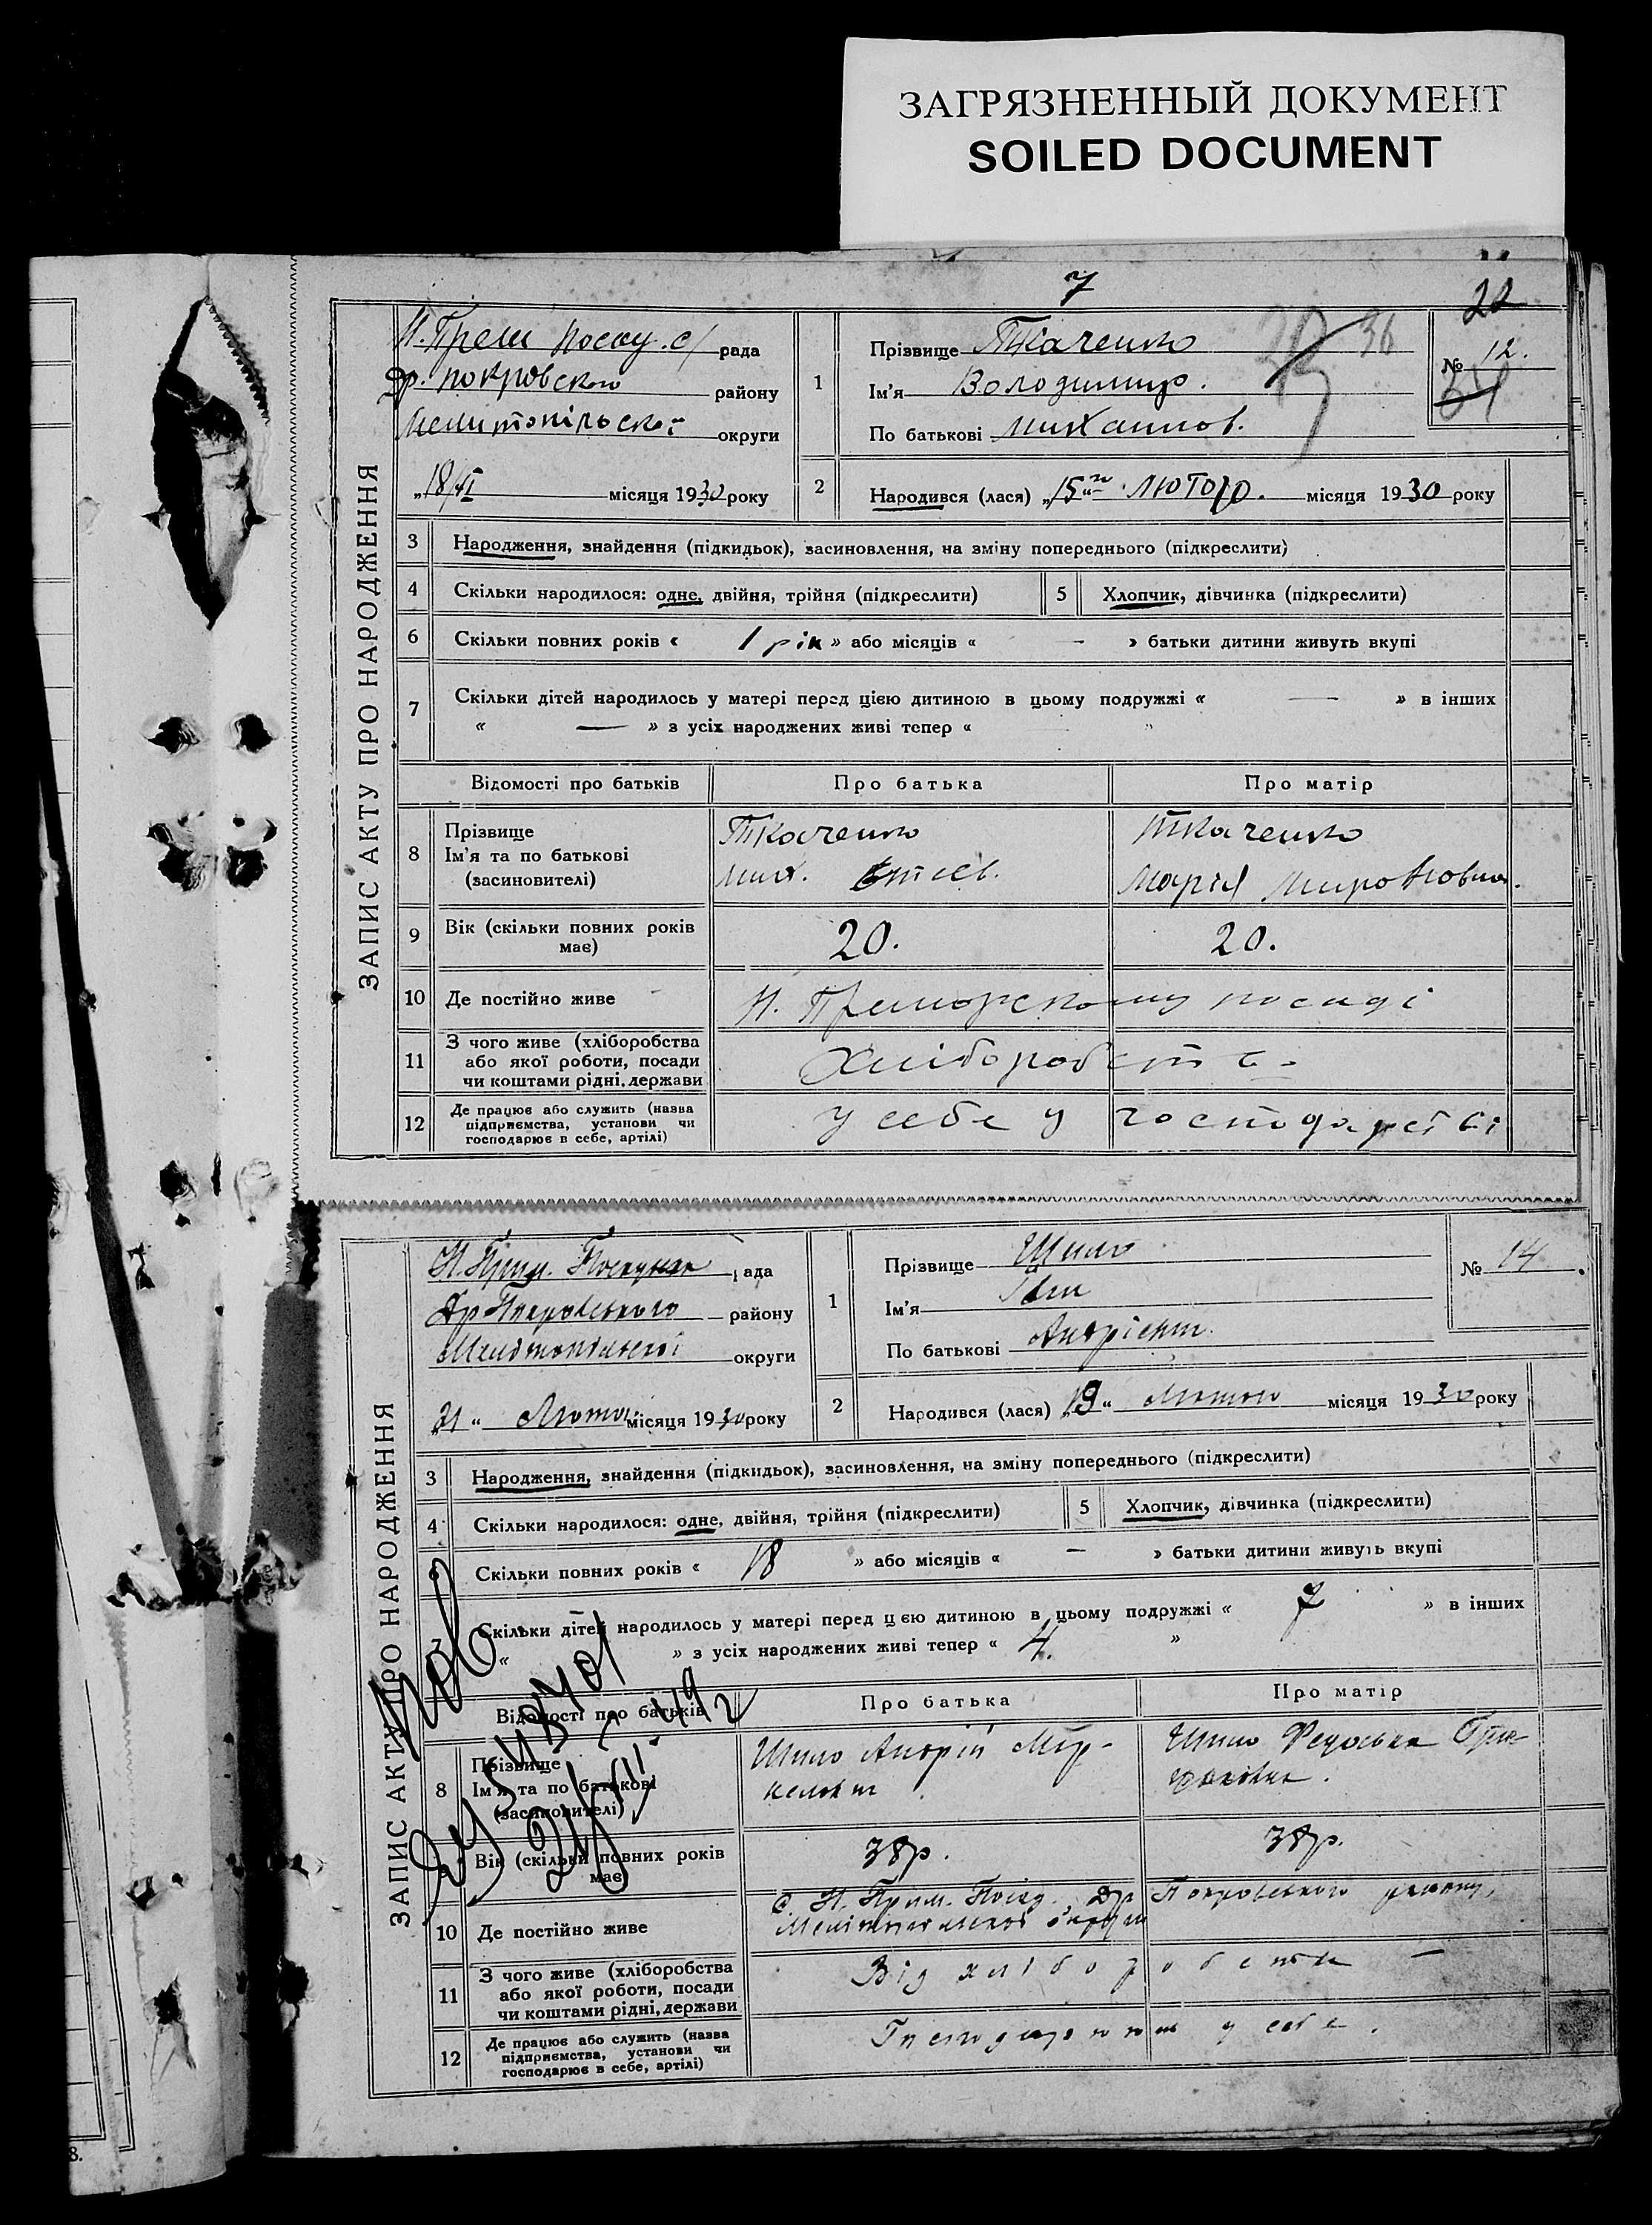 ЗАГРЯЗНЕННЫЙ ДОКУМЕНТ
SOILED DOCUMENT
7
22
ЗАПИС АКТУ ПРО НАРОДЖЕННЯ
рада
покровского району
Мелитопільскоі округи
18/II місяця 1930 року
1
Прізвище Ткаченко
Ім'я Володимир.
По батькові Михаилов.
36
№ 12.
2
Народився (лася) „15“ го Лютого. місяця 1930 року
3 Народження, знайдення (підкидьок), засиновлення, на зміну попереднього (підкреслити)
4 Скільки народилося: одне, двійня, трійня (підкреслити)
5 Хлопчик, дівчинка (підкреслити)
6 Скільки повних років « 1 рік » або місяців « — » батьки дитини живуть вкупі
7 Скільки дітей народилось у матері перед цією дитиною в цьому подружжі « — » в інших
« — » з усіх народжених живі тепер « »
Відомості про батьків Про батька Про матір
8 Прізвище
Ім'я та по батькові
(засиновителі)
Ткаченко
Мих.
Ткаченко
Мария Мироновна.
9 Вік (скільки повних років має)
20. 20.
10 Де постійно живе
Н. Приморскому посаді
11 З чого живе (хліборобства
або якої роботи, посади
чи коштами рідні, держави
Хліборобств.
12 Де працює або служить (назва
підприємства, установи чи
господарює в себе, артілі)
у себе у господарстві
ЗАПИС АКТУ ПРО НАРОДЖЕННЯ
Н. Прим. рада
Др Покровського району
Мелітопільскоі округи
„21“ Лютого місяця 1930 року
1
Прізвище Шило
Ім'я
По батькові
№ 14.
2
Народився (лася) „19“ Лютого місяця 1930 року
3 Народження, знайдення (підкидьок), засиновлення, на зміну попереднього (підкреслити)
4 Скільки народилося: одне, двійня, трійня (підкреслити)
5 Хлопчик, дівчинка (підкреслити)
Скільки повних років « 18 » або місяців « — » батьки дитини живуть вкупі
7 Скільки дітей народилось у матері перед цією дитиною в цьому подружжі « 7 » в інших
« » з усіх народжених живі тепер « 4. »
Відомості про батьків Про батька Про матір
8 Прізвище
Ім'я та по батькові
(засиновителі)
Шило Андрій
Шило Федоська
Вік (скільки повних років має)
38р. 38р.
10 Де постійно живе
с Н. Прим. Посад. Др Покровського району,
Мелітопільскоі округи
11 З чого живе (хліборобства
або якої роботи, посади
чи коштами рідні, держави
Від хліборобства —
12 Де працює або служить (назва
підприємства, установи чи
господарює в себе, артілі)
у себе.
8.